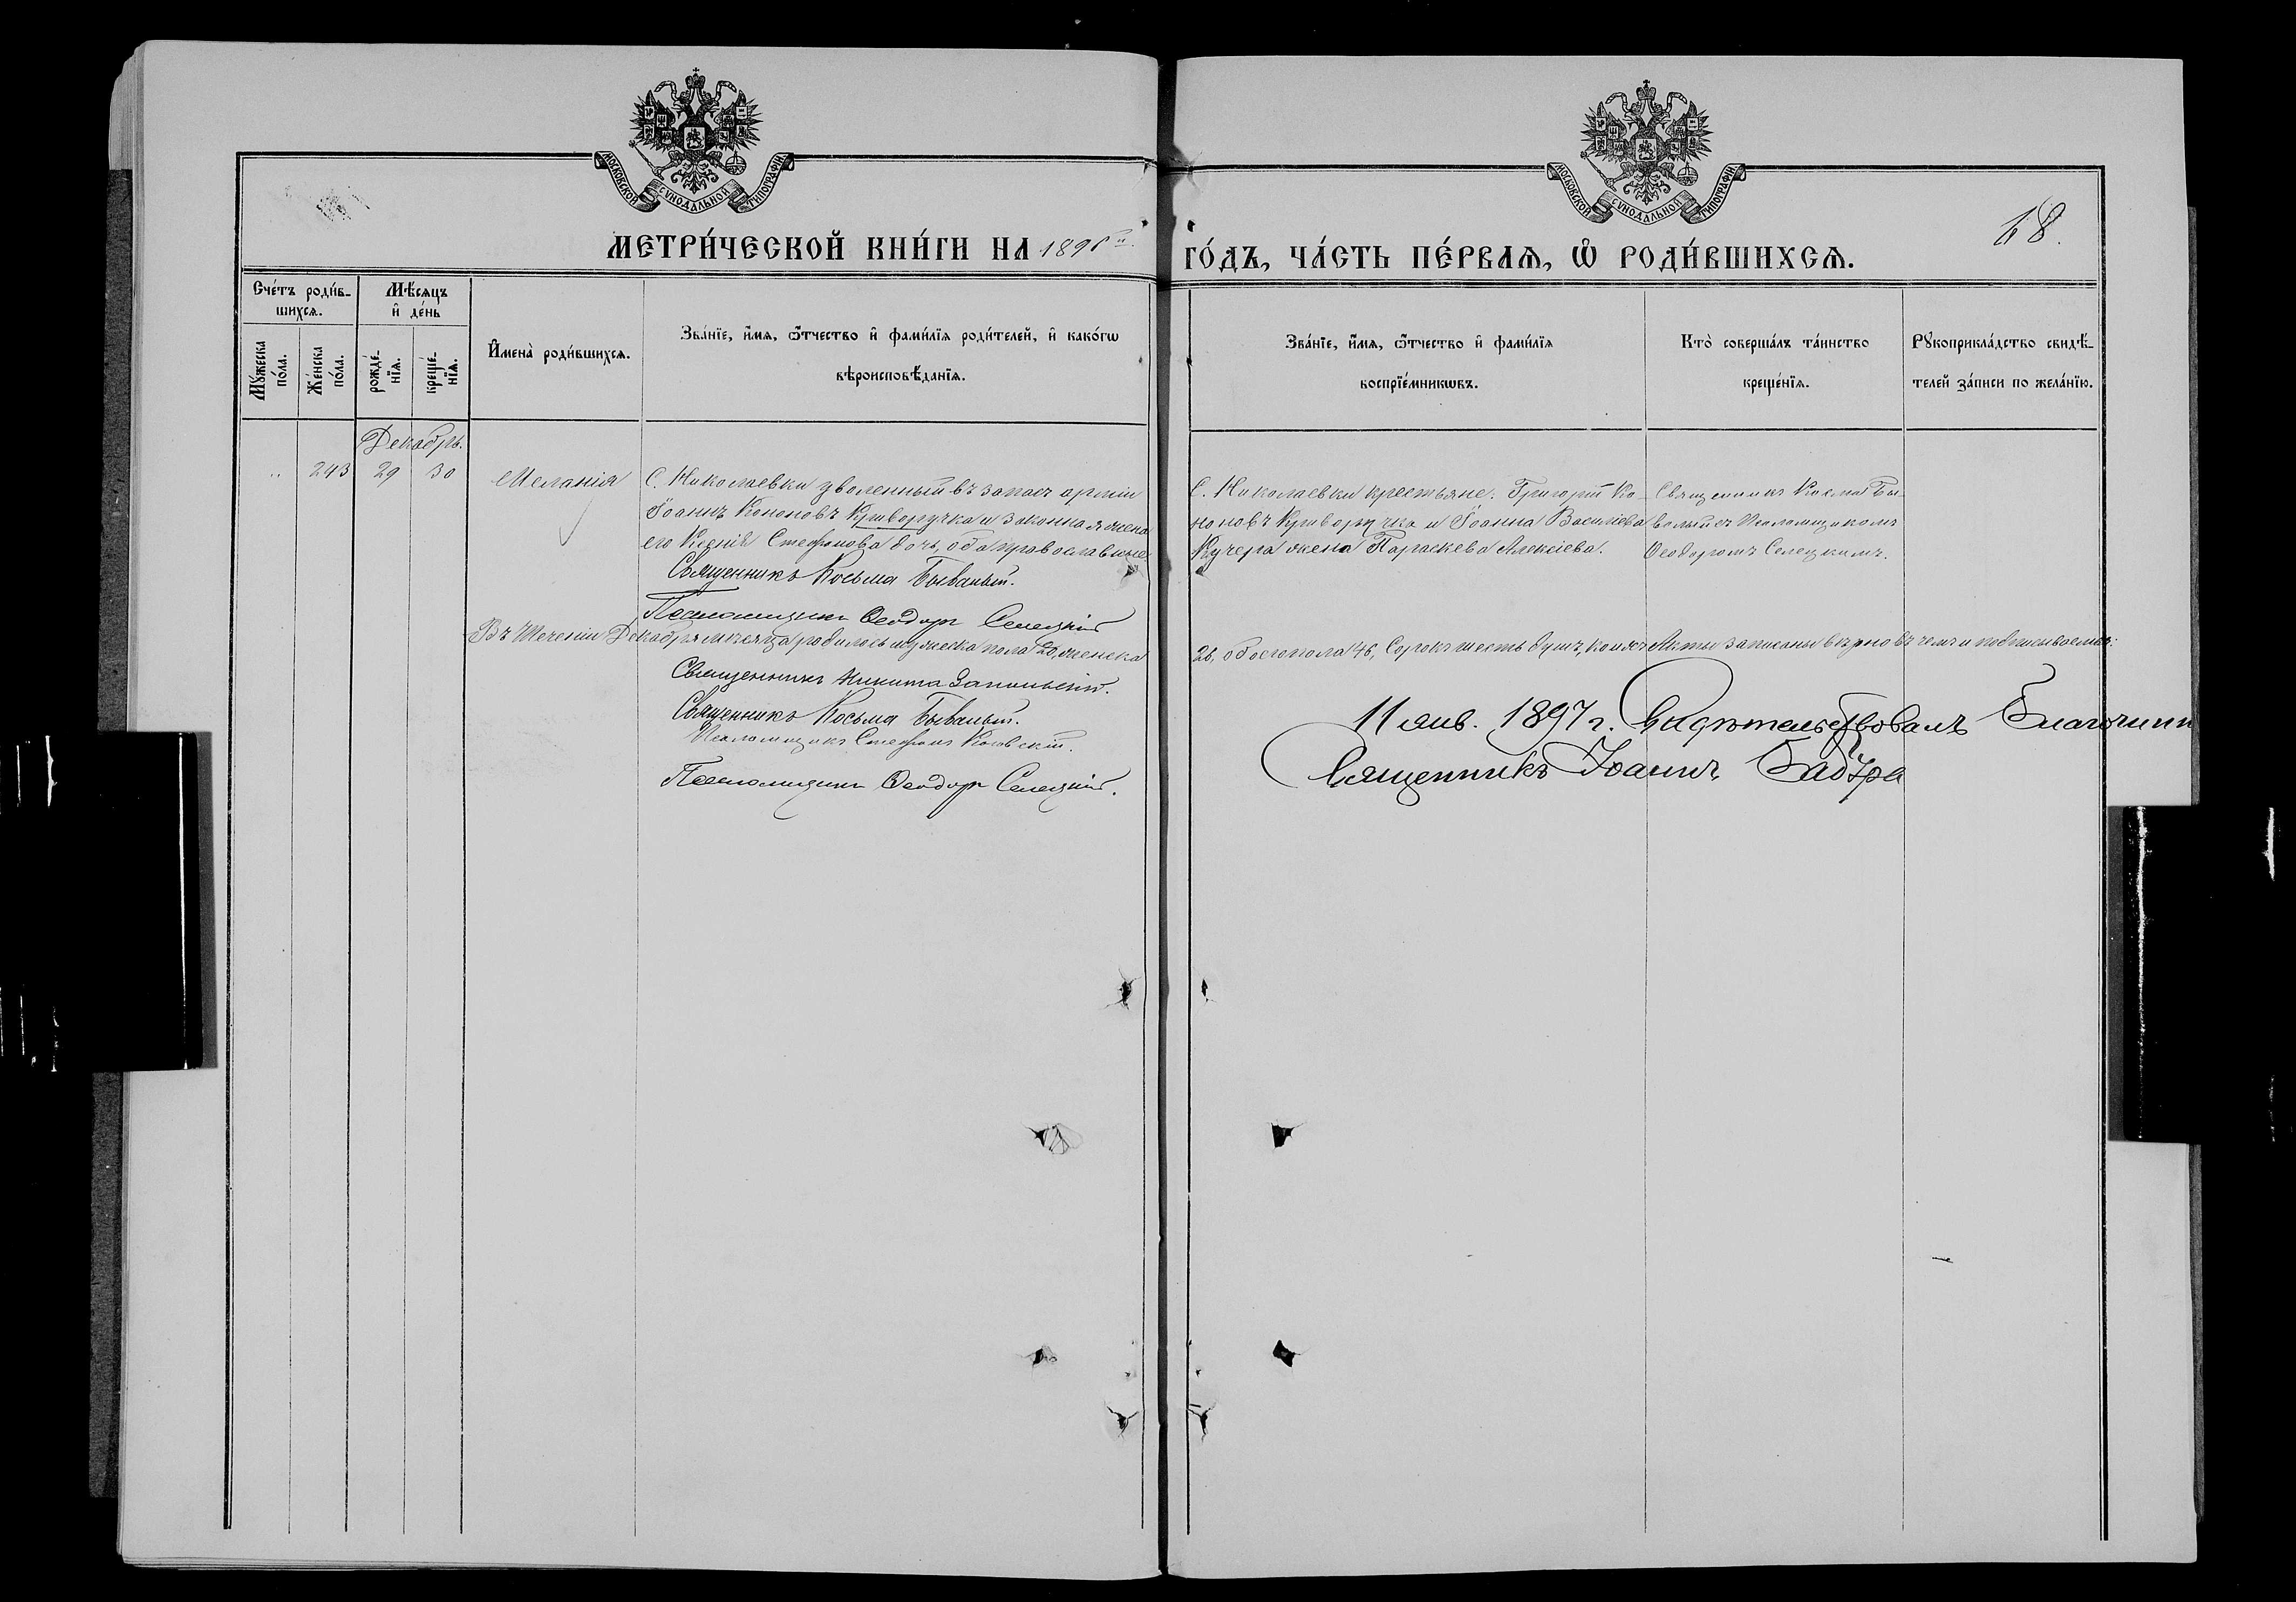 МОСКОВСКОЙ СѴНОДАЛЬНОЙ ТИПОГРАФІИ
МОСКОВСКОЙ СѴНОДАЛЬНОЙ ТИПОГРАФІИ
68.
МЕТРИ́ЧЕСКОЙ КНИ́ГИ НА 1896 й. ГО́ДЪ, ЧА́СТЬ ПЕ́РВАѦ, Ѡ҆ РОДИ́ВШИХСѦ.
Сче́тъ роди́в-
шихсѧ.
Мꙋ́жеска
по́ла.
Же́нска
по́ла.
Мѣ́сѧцъ
и҆ де́нь
рожде́-
нїѧ.
креще́-
нїѧ.
И҆мена̀ роди́вшихсѧ.
Зва́нїе, и҆́мѧ, ѻ҆́тчество и҆ фами́лїѧ роди́телей, и҆ како́гѡ
вѣроисповѣ́данїѧ.
Зва́нїе, и҆́мѧ, ѻ҆́тчество и҆ фами́лїѧ
воспрїе́мникѡвъ.
Кто̀ соверша́лъ та́инство
креще́нїѧ.
Рꙋкоприкла́дство свидѣ́-
телей за́писи по жела́нїю.
Декабрь.
„ 243 29 30
Меланія
С. Николаевки уволенный въ запасъ арміи
Іоаннъ Кононовъ Криворучка и законная жена
его Ксенія Стефанова дочь, оба православные.
Священникъ Косьма Бывалый.
Псаломщикъ Ѳеодоръ Селецкій
С. Николаевки крестьяне: Григорій Ко-
ноновъ Криворучка и Іоанна Васильева
Кучера жена Параскева Алексіева.
Священникъ Косма Бы-
валый съ Псаломщикомъ
Ѳеодоромъ Селецкимъ.
Въ теченіи Декабря мѣсяца родилось мужеска пола 20, женска 26, обоего пола 46, Сорокъ шесть душъ, коихъ Акты записаны вѣрно въ чемъ и подписываемся:
Священникъ Никита
Священникъ Косьма Бывалый.
Псаломщикъ Стефанъ
Псаломщикъ Ѳеодоръ Селецкій.
11 янв. 1897 г. Свидѣтельствовалъ Благочинн
Священникъ Іоаннъ